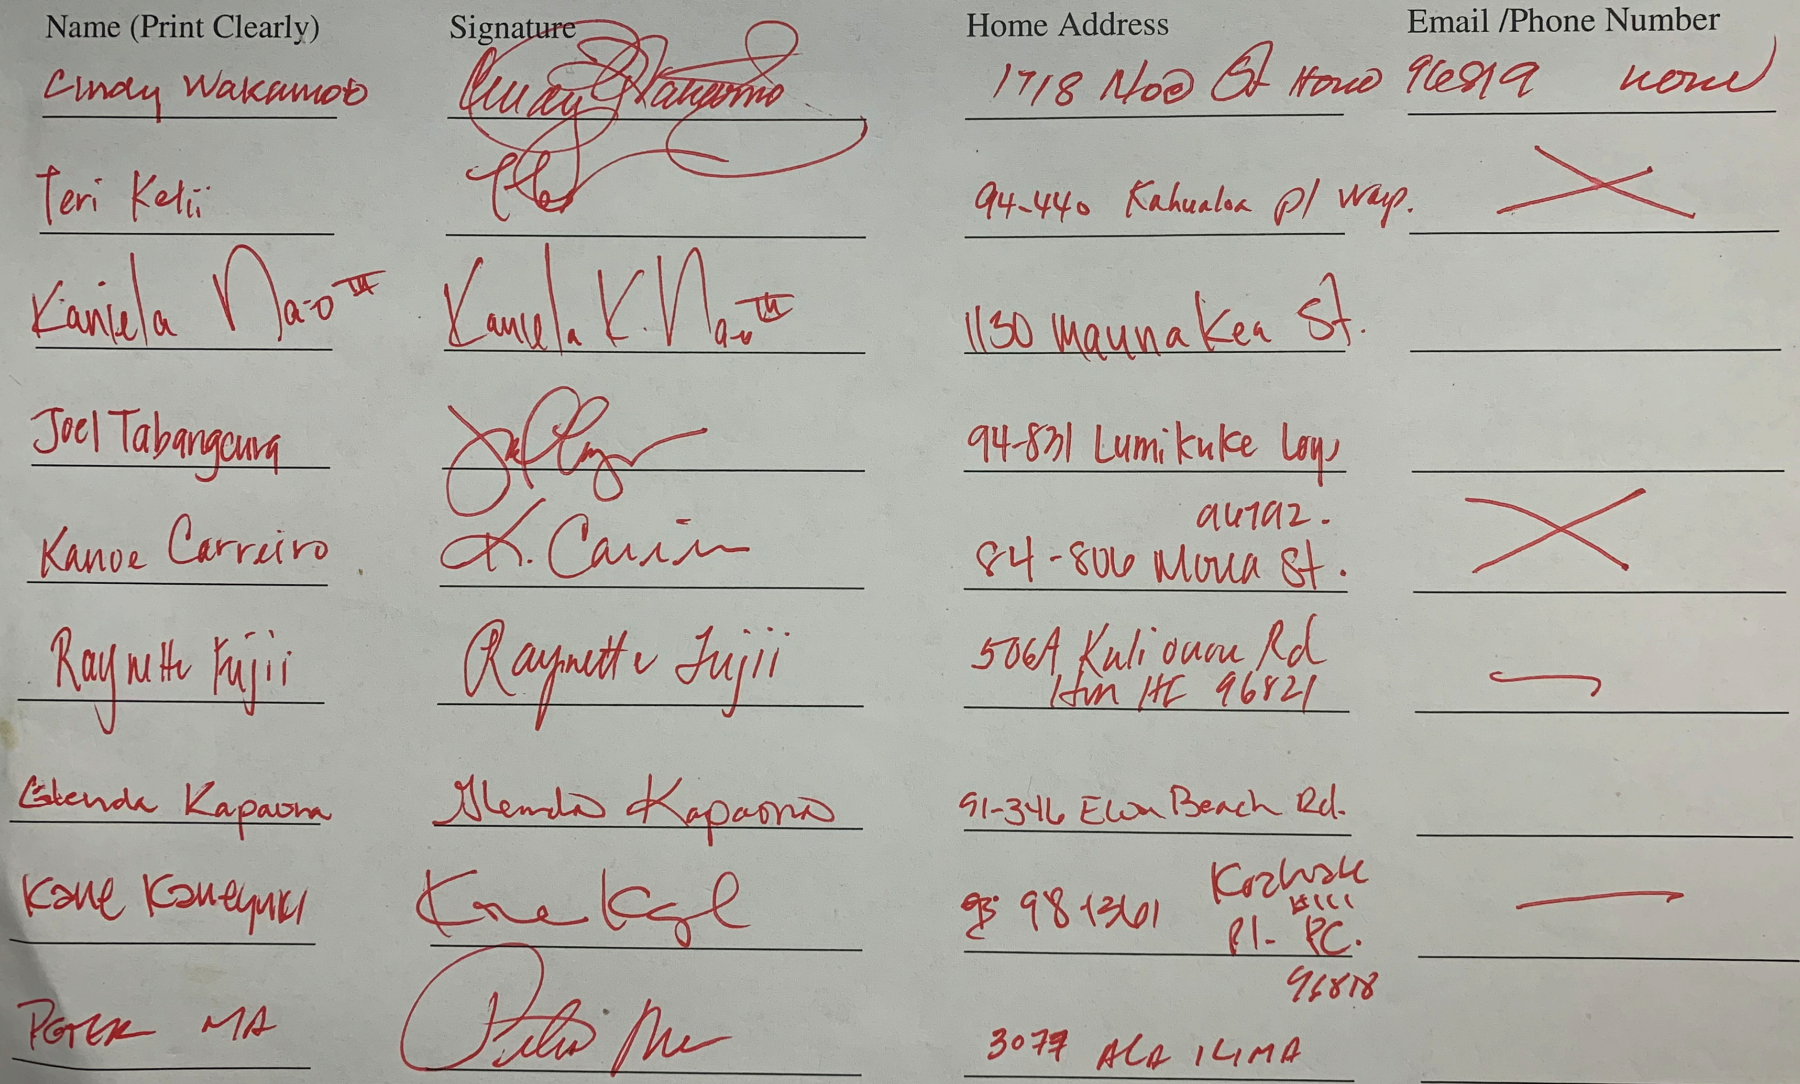 Name (Print Clearly) Signature Home Address Email /Phone Number
Cindy Wakamoto Cindy Wakamoto 1718 Noe St Hono 96819 none
Teri Kelii 94-440 Kahualoa pl Waip.
Kaniela Na-o III Kaniela K. Na-o III 1130 Mauna Kea St.
Joel Tabangcura 94-831 Lumikuke Loop
96792.
Kanoe Carreiro K. Carreiro 84-806 Moua St.
Raynette Fujii Raynette Fujii 506A Kuliouou Rd
Hon HI 96821
Glenda Kapaona Glenda Kapaona 91-346 Ewa Beach Rd.
Kane Kaneyuki Kane 98-1361
Pl- PC.
96818
PETER MA Peter Ma 3077 ALA ILIMA